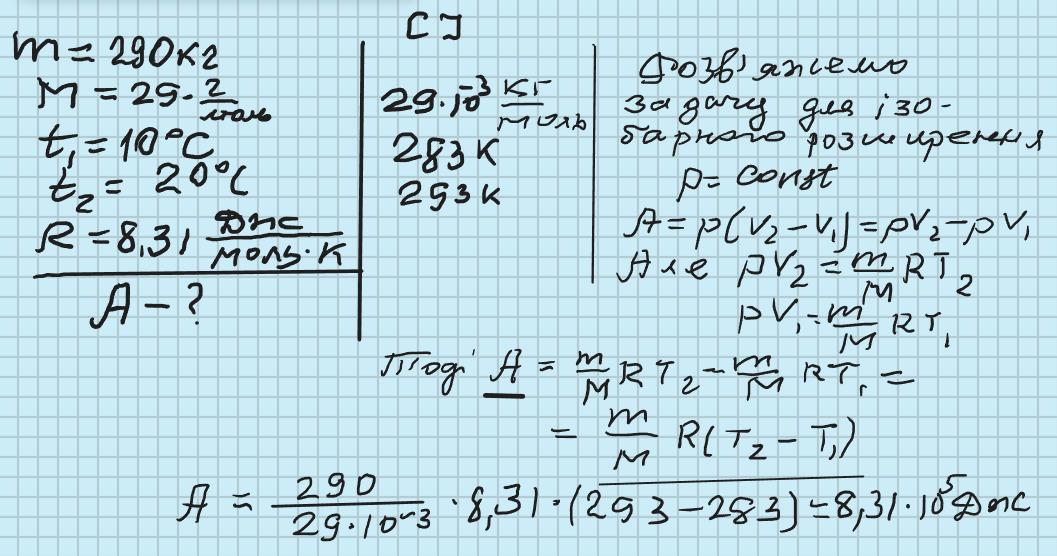 m = 290 кг
M = 29 · г/моль
t₁ = 10°C
t₂ = 20°C
R = 8,31 Дж/моль·К
A – ?
[СІ]
29·10⁻³ кг/моль
283 К
293 К
Розв'яжемо
задачу для ізо-
барного розширення
p = const
A = p(V₂ – V₁) = pV₂ – pV₁
Але pV₂ = m/M RT₂
pV₁ = m/M RT₁
Тоді A = m/M RT₂ – m/M RT₁ =
= m/M R(T₂ – T₁)
A = 290/29·10⁻³ · 8,31 · (293 – 283) = 8,31·10⁵ Дж